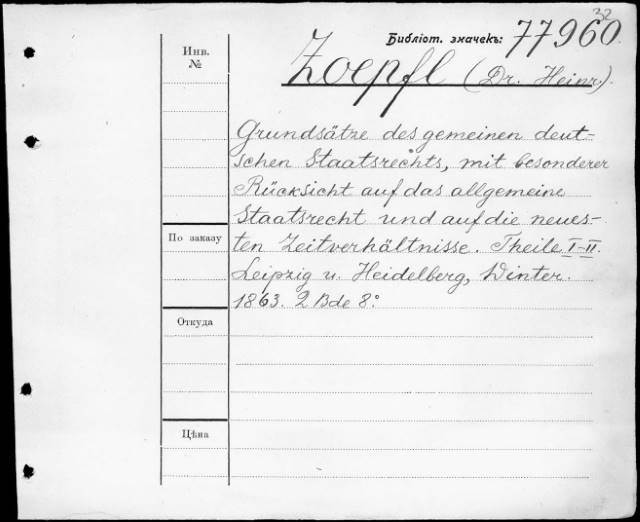 32
Библіот. значекъ: 77960.
Инв.
№
Zoepfl (Dr. Heinr.)
Grundsätze des gemeinen deut-
schen Staatsrechts, mit besonderer
Rücksicht auf das allgemeine
Staatsrecht und auf die neues-
По заказу
ten Zeitverhältnisse. Theile I-II.
Leipzig u. Heidelberg, Winter.
1863. 2 Bde 8.°
Откуда
Цѣна